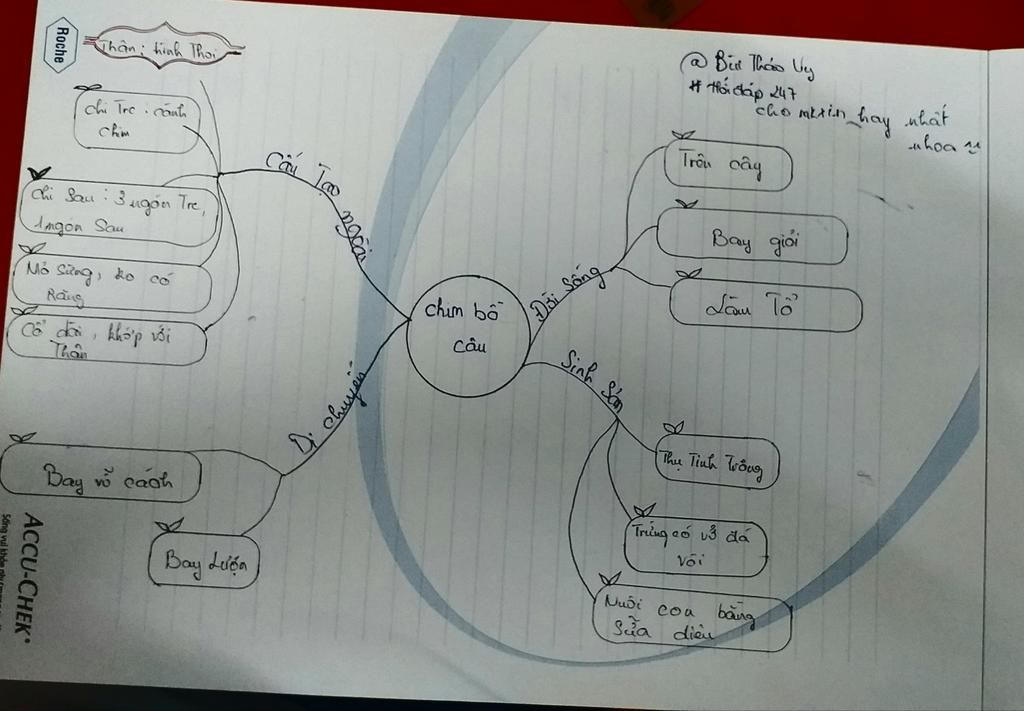 Roche
Thân : hình Thoi
chi Trc : cánh
chim
chi Sau : 3 ngón Trc,
1 ngón Sau
Mỏ Sừng, ko có
Răng
Cổ dài, khớp với
Thân
Cấu Tạo ngoài
Di chuyển
Bay vỗ cánh
Bay Lượn
ACCU-CHEK®
chim bồ
câu
@ Bùi Thảo Vy
# Hỏi đáp 247
cho mk xin hay nhất
nhoa
Đời Sống
Trên cây
Bay giỏi
Làm Tổ
Sinh Sản
Thụ Tinh Trong
Trứng có vỏ đá
vôi
Nuôi con bằng
Sữa diều